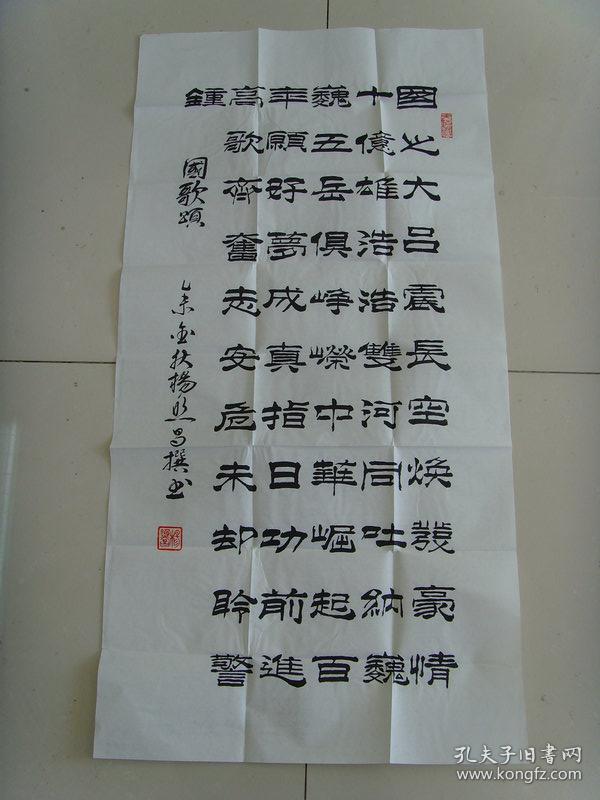 國之大呂震長空煥發豪情
十億雄浩浩雙河同吐納巍
巍五岳俱崢嶸中華崛起百
年願好夢成真指日功前進
高歌齊奮志安危未却聆警
鍾
國歌頌
乙未金秋楊昌撰書
孔夫子旧書网
www.kongfz.com